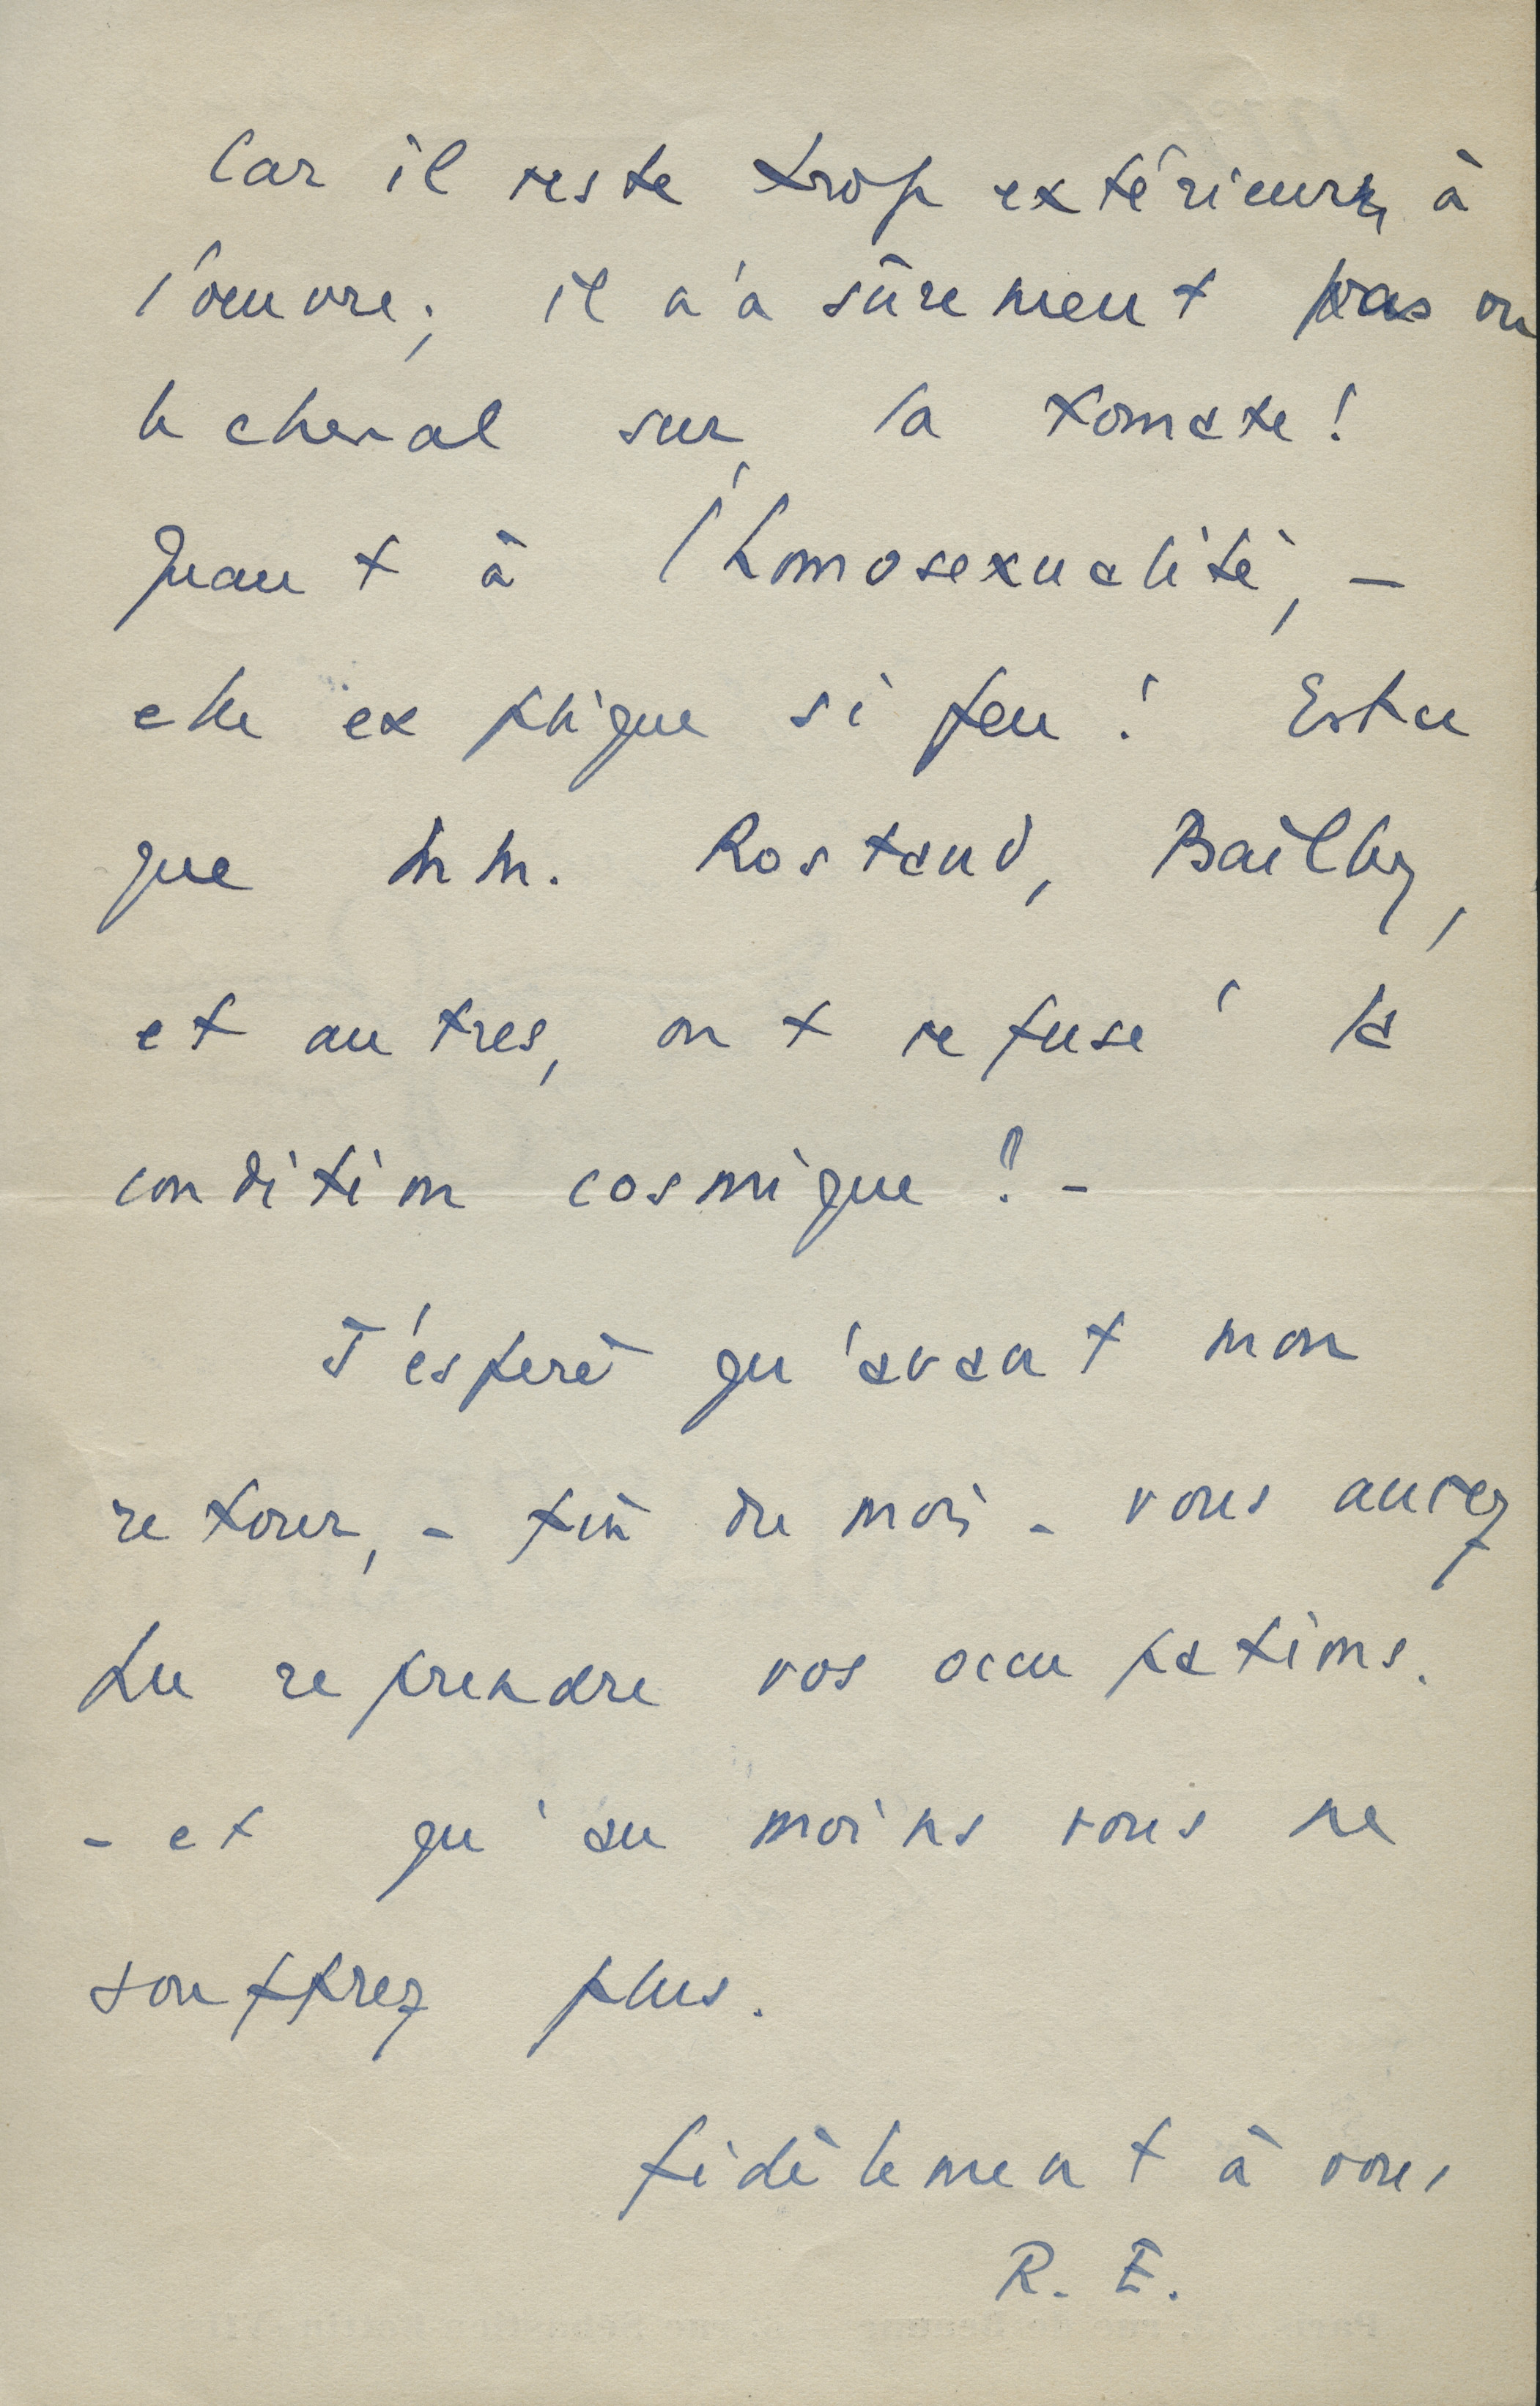 Car il reste trop extérieur, à
l'œuvre; il n'a sûrement pas vu
le cheval sur la tomate!
Quant à l'homosexualité, –
elle explique si peu! Est-ce
que MM. Rostand, Bailby,
et autres, ont refusé la
condition cosmique? –
J'espère qu'avant mon
retour, – fin du mois – vous aurez
pu reprendre vos occupations.
– et qu'au moins vous ne
souffrez plus.
fidèlement à vous
R. E.